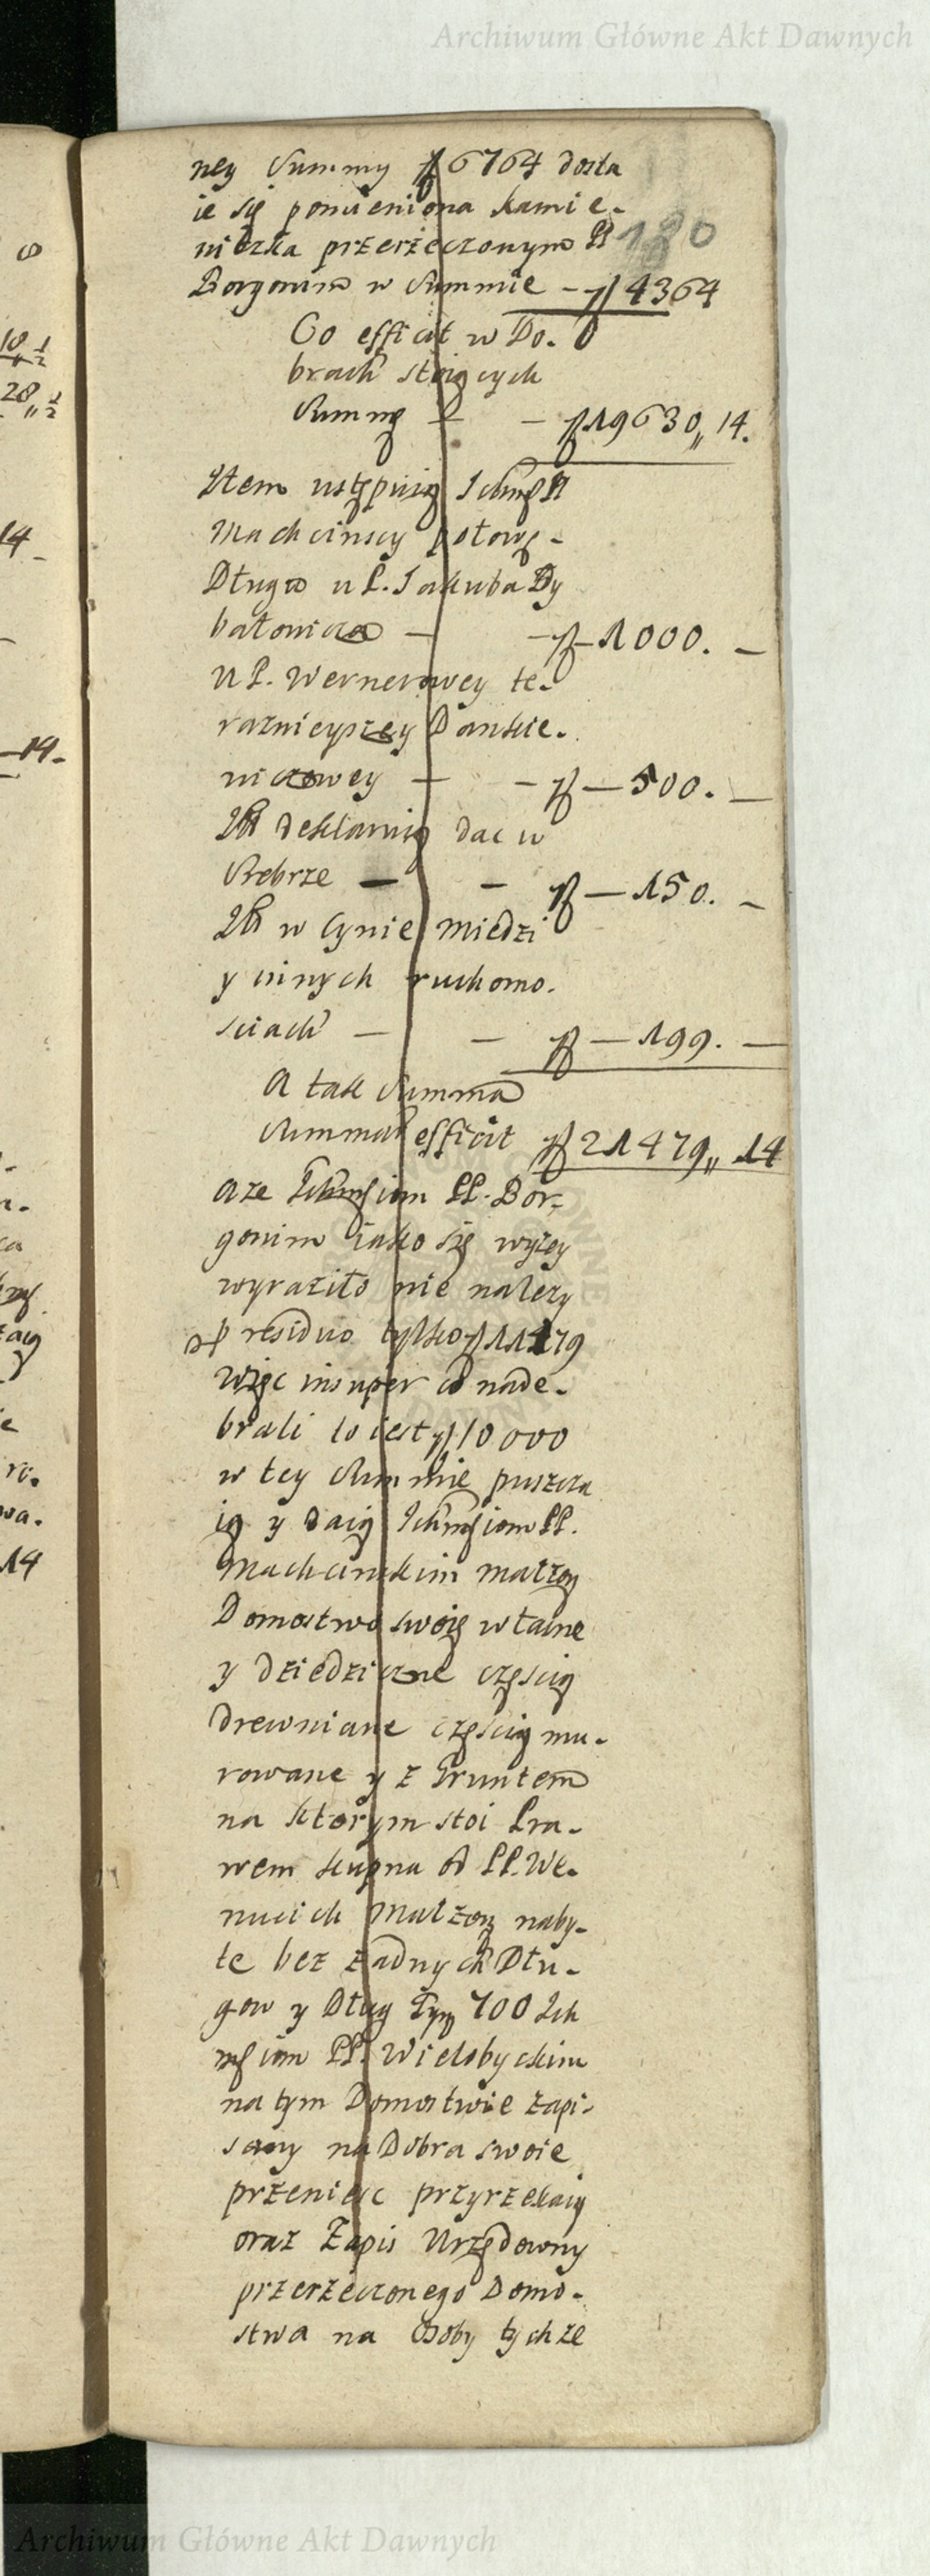 Archiwum Główne Akt Dawnych
ney Summy ƒ 6764 dosta
ie się pomieniona kamie.
niczka przerzeczonym PP
180
Borgonim w Summie - ƒ 4364
Co efficit w Do.
brach stoiących
Summę - - ƒ 19630,, 14.
Item ustępuią Ichmść PP
Machcinscy połowę -
Długu u P. Jakuba Dy
batowicza - - ƒ - 1000. -
U P. Wernerowey te.
raznieyszey Dankie.
niczowey - - ƒ - 500. -
Item deklaruią dac w
Srebrze - - ƒ - 150. -
Item w Cynie Miedzi
y innych ruchomo.
sciach - - ƒ - 199. -
A tak Summa
Summar efficit ƒ 21479,, 14
aze Ichmściom PP. Bor-
gonim iako się wyżey
wyraziło nie nalezy
residuo tylko ƒ 11479
Więc insuper co nade.
brali to iest ƒ 10000
w tey Summie puszcza
ią y daią Ichmściom PP.
Machcinskim małżon
Domostwo swoie własne
y dziedziczne częscią
drewniane częscią mu.
rowane y z Gruntem
na ktorym stoi Pra.
wem kupna od PP. We.
nucich Małżon naby-
te bez żadnych Dłu-
gow y Dług Tym 700 Ich
mściom PP. Wielobyckim
na tym Domostwie zapi-
sany na Dobra swoie
przeniesc przyrzekaią
oraz Zapis Urzędowny
przerzeczonego Domo-
stwa na Osoby tychze
8
18 1/2
28,, 1/2
14 -
- 14.
14
Archiwum Główne Akt Dawnych